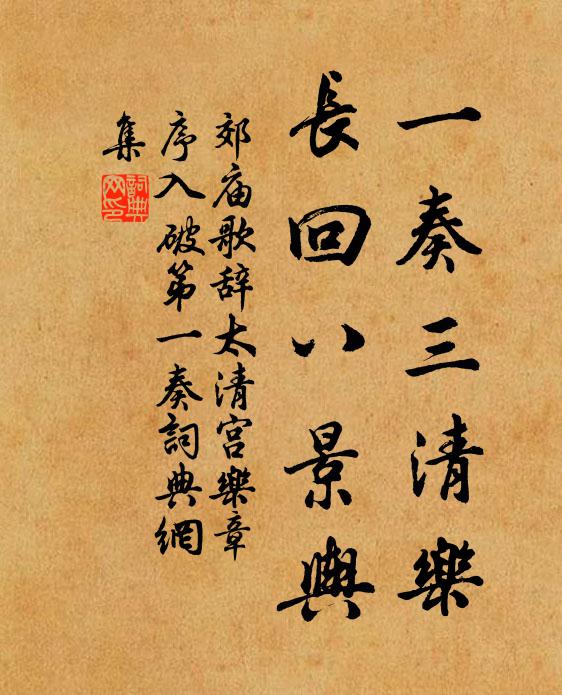 一奏三清樂
長回八景輿
郊庙歌辞太清宮樂章
序入破第一奏詞典網
集
詞典网印